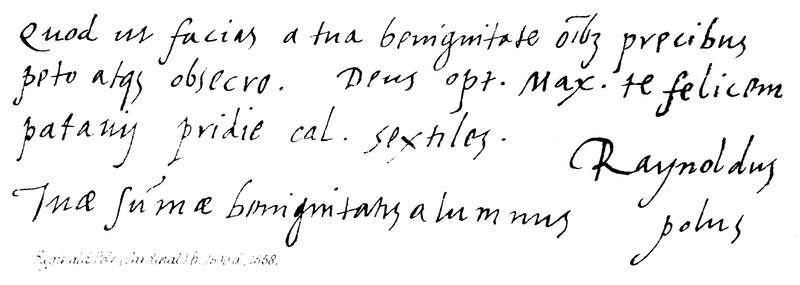 Quod ut facias a tua benignitate oĩbꝫ precibus
peto atqꝫ obsecro. Deus opt. Max. te felicem
patavij pridie cal. sextiles.
Raynoldus
Tuæ sũmæ benignitatis alumnus polus
Reginald Pole (Cardinal) b. 1500 d. 1558.